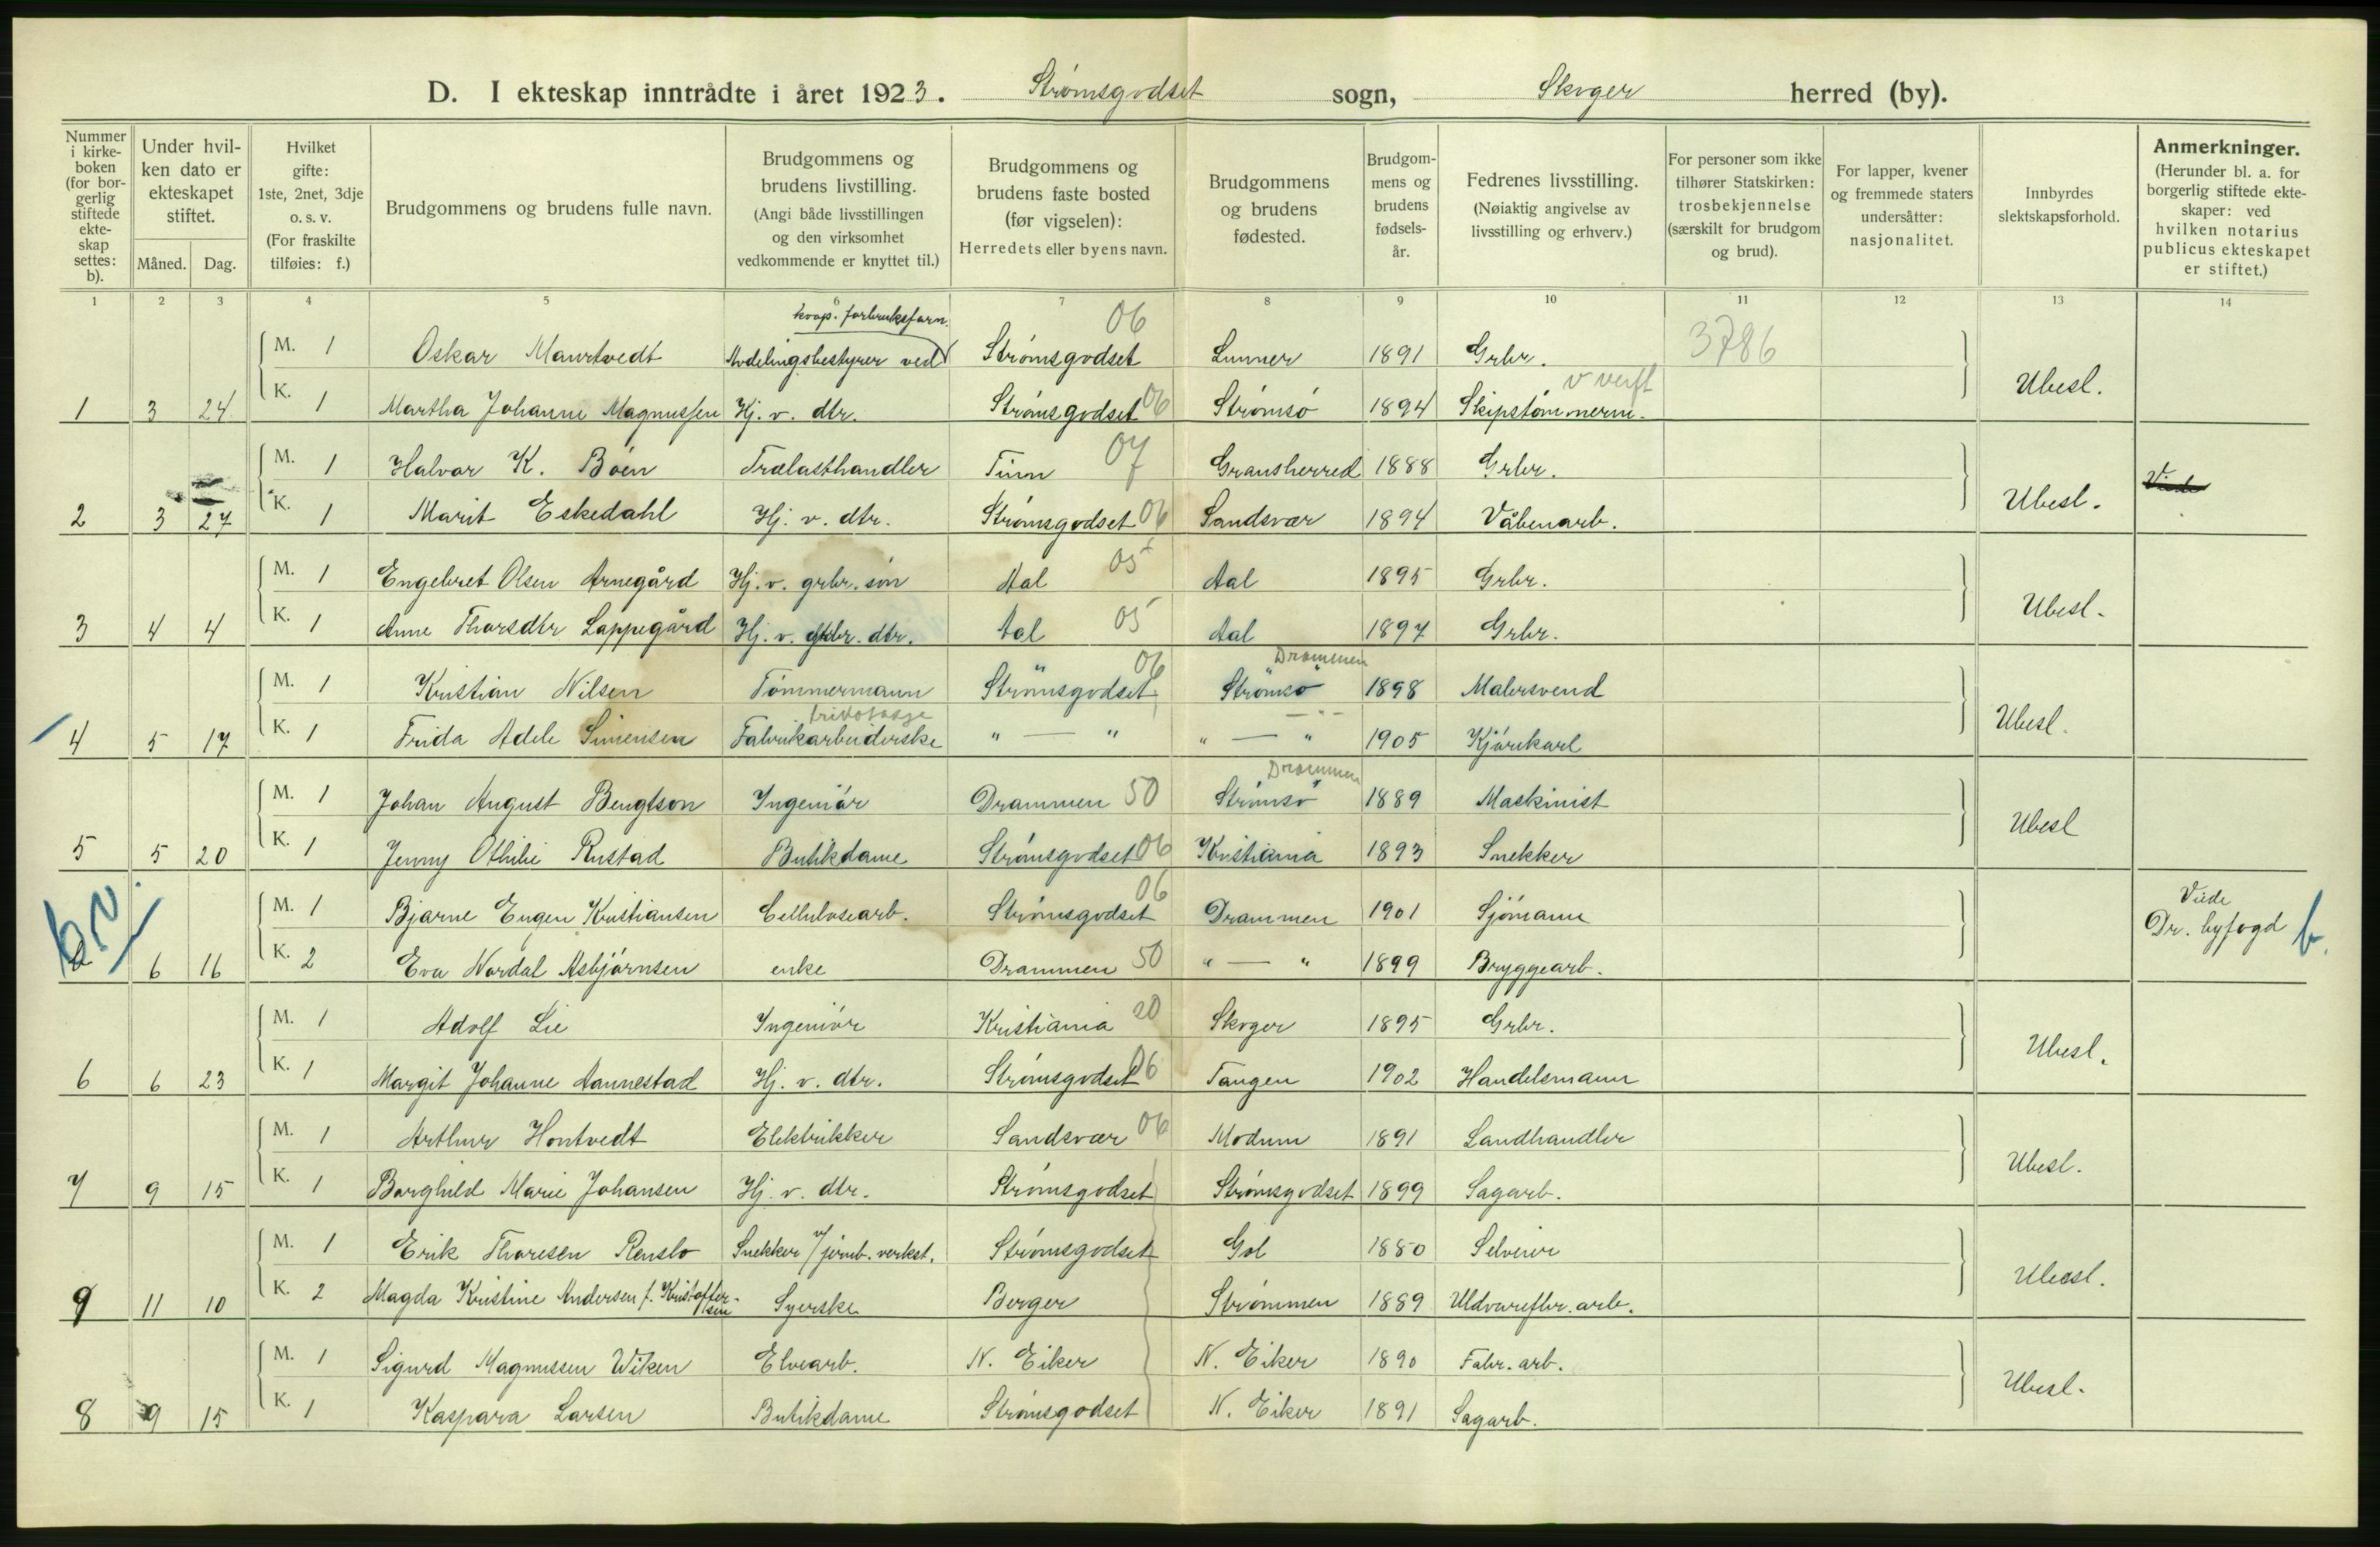 D. I ekteskap inntrådte i året 1923. Strømsgodset sogn, Skoger herred (by).
Nummer i kirke-boken (for bor-gerlig stiftede ekte-skap settes: b).
Under hvil-ken dato er ekteskapet stiftet.
Måned. Dag.
Hvilket gifte: 1ste, 2net, 3dje o. s. v. (For fraskilte tilføies: f.)
Brudgommens og brudens fulle navn.
Brudgommens og brudens livstilling. (Angi både livsstillingen og den virksomhet vedkommende er knyttet til.)
Brudgommens og brudens faste bosted (før vigselen): Herredets eller byens navn.
Brudgommens og brudens fødested.
Brudgom-mens og brudens fødsels-år.
Fedrenes livsstilling. (Nøiaktig angivelse av livsstilling og erhverv.)
For personer som ikke tilhører Statskirken: trosbekjennelse (særskilt for brudgom og brud).
For lapper, kvener og fremmede staters undersåtter: nasjonalitet.
Innbyrdes slektskapsforhold.
Anmerkninger. (Herunder bl. a. for borgerlig stiftede ekte-skaper: ved hvilken notarius publicus ekteskapet er stiftet.)
1 2 3 4 5 6 7 8 9 10 11 12 13 14
koop. forbruksforn. 06
M. 1 Oskar Maurtvedt Avdelingsbestyrer ved Strømsgodset Lunner 1891 Grbr. 3786
v verft
1 3 24 K. 1 Martha Johanne Magnussen Hj. v. dtr. Strømsgodset 06 Strømsø 1894 Skipstømmerm. Ubesl.
M. 1 Halvor K. Bøen Trælasthandler Tinn 07 Gransherred 1888 Grbr.
2 3 27 K. 1 Marit Eskedahl Hj. v. dtr. Strømsgodset 06 Sandsvær 1894 Våbenarb. Ubesl.
M. 1 Engebret Olsen Arnegård Hj. v. grbr. søn Aal 05 Aal 1895 Grbr.
3 4 4 K. 1 Anne Thorsdtr Lappegård Hj. v. grbr. dtr. Aal 05 Aal 1897 Grbr. Ubesl.
06 Drammen
M. 1 Kristian Nilsen Tømmermann Strømsgodset Strømsø 1898 Malersvend
trikotasje
4 5 17 K. 1 Frida Adele Simensen Fabrikarbeiderske " — " " — " 1905 Kjørekarl Ubesl.
Drammen
M. 1 Johan August Bengtson Ingeniør Drammen 50 Strømsø 1889 Maskinist
5 5 20 K. 1 Jenny Othilie Rustad Butikdame Strømsgodset 06 Kristiania 1893 Snekker Ubesl
06
M. 1 Bjarne Eugen Kristiansen Cellulosearb. Strømsgodset Drammen 1901 Sjømann Viede Dr. byfogd b.
6 16 K. 2 Eva Nordal Asbjørnsen enke Drammen 50 " — " 1899 Bryggearb.
M. 1 Adolf Lie Ingeniør Kristiania 20 Skoger 1895 Grbr.
6 6 23 K. 1 Margit Johanne Aannestad Hj. v. dtr. Strømsgodset 06 Tangen 1902 Handelsmann Ubesl.
M. 1 Arthur Hontvedt Elektrikker Sandsvær 06 Modum 1891 Landhandler
7 9 15 K. 1 Borghild Marie Johansen Hj. v. dtr. Strømsgodset Strømsgodset 1899 Sagarb. Ubesl.
M. 1 Erik Thoresen Renslo Snekker v/ jernb. verkst. Strømsgodset Gol 1880 Selveier
9 11 10 K. 2 Magda Kristine Andersen f. Kristoffersen Syerske Berger Strømmen 1889 Uldvarefbr. arb. Ubesl.
M. 1 Sigurd Magnussen Wiken Elvearb. N. Eiker N. Eiker 1890 Fabr. arb.
8 9 15 K. 1 Kaspara Larsen Butikdame Strømsgodset N. Eiker 1891 Sagarb. Ubesl.